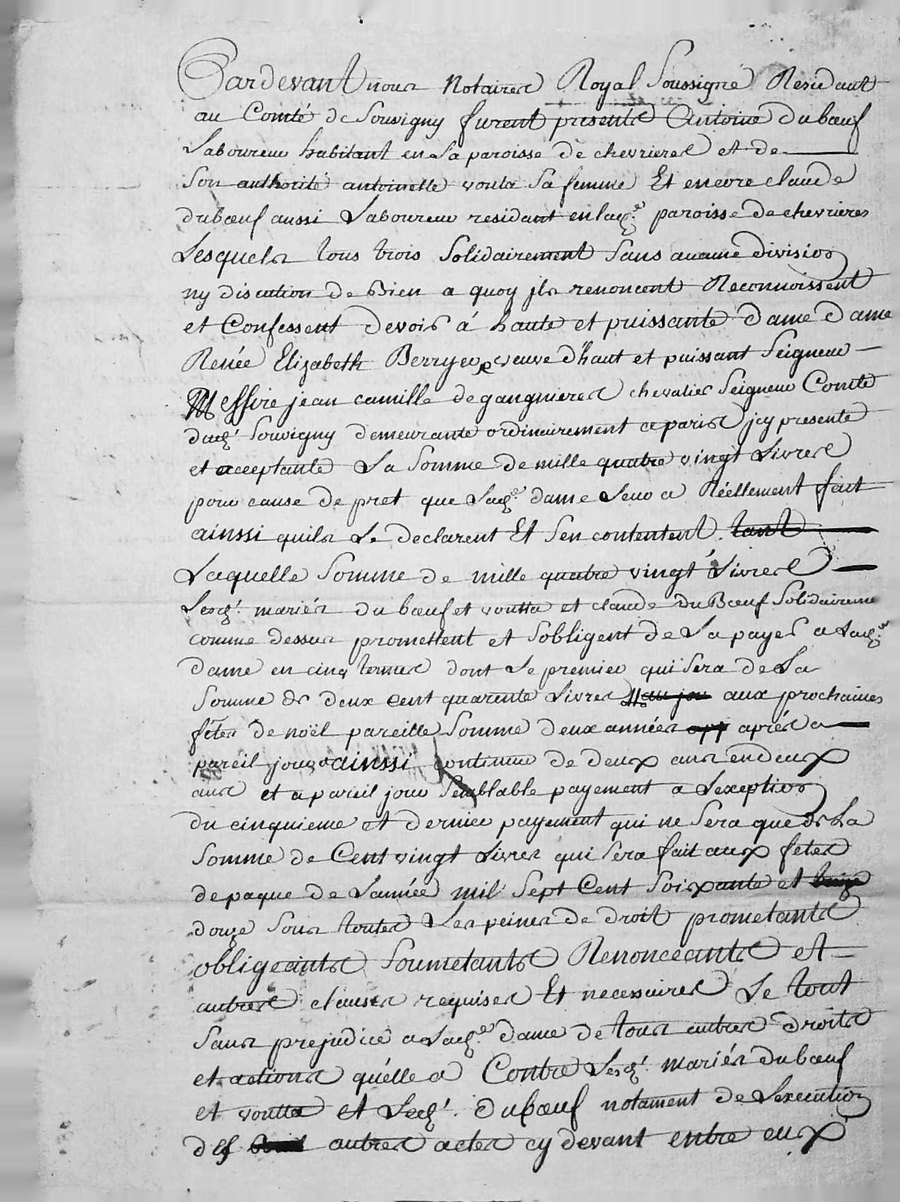 Pardevant nous Notaires Royal Soussigné Residant
au Comté de Souvigny furent presents Antoine duboeuf
Laboureur habitant en la paroisse de chevrieres et de
son authorité antoinette voutta sa femme Et encore claude
duboeuf aussi Laboureur residant en laq.e paroisse de chevrieres
Lesquels tous trois solidairement sans aucune division
ny discution de Bien a quoy jls renoncent Reconnoissent
et Confessent devoir á haute et puissante dame dame
Renée Elizabeth Berryer veuve d'haut et puissant Seigneur
Messire jean camille de gangnieres chevalier Seigneur Comte
dud. Souvigny demeurante ordinairement a paris jcy presente
et acceptante La somme de mille quatre vingt Livres
pour cause de pret que Lad.e dame Leur a Réellement fait
ainssi quils Le declarent Et s'en contentent tant
Laquelle somme de mille quatre vingt Livres
Lesd. mariés duboeuf et voutta et claude duBoeuf Solidairement
comme dessus promettent et sobligent de La payer a Lad.e
dame en cinq termes dont Le premier qui sera de La
somme de deux cent quarente Livres aux prochaines
fétes de noël pareille somme deux années app après a
pareil jour ainssi continue de deux ans en deux
ans et a pareil jour semblable payement a Lexeption
du cinquieme et dernier payement qui ne sera que de La
somme de Cent vingt Livres qui sera fait aux fétes
de paque de Lannée mil sept Cent soixante et
douze sous toutes Les peines de droit prometants
obligeants soumetants Renonceants et
autres clauses requises Et necessaires Le tout
sans prejudice a Lad.e dame de tous autres droits
et actions quélle a Contre Lesd. mariés duboeuf
et voutta et Led. duboeuf notament de Lexecution
des autres actes cy devant entre eux